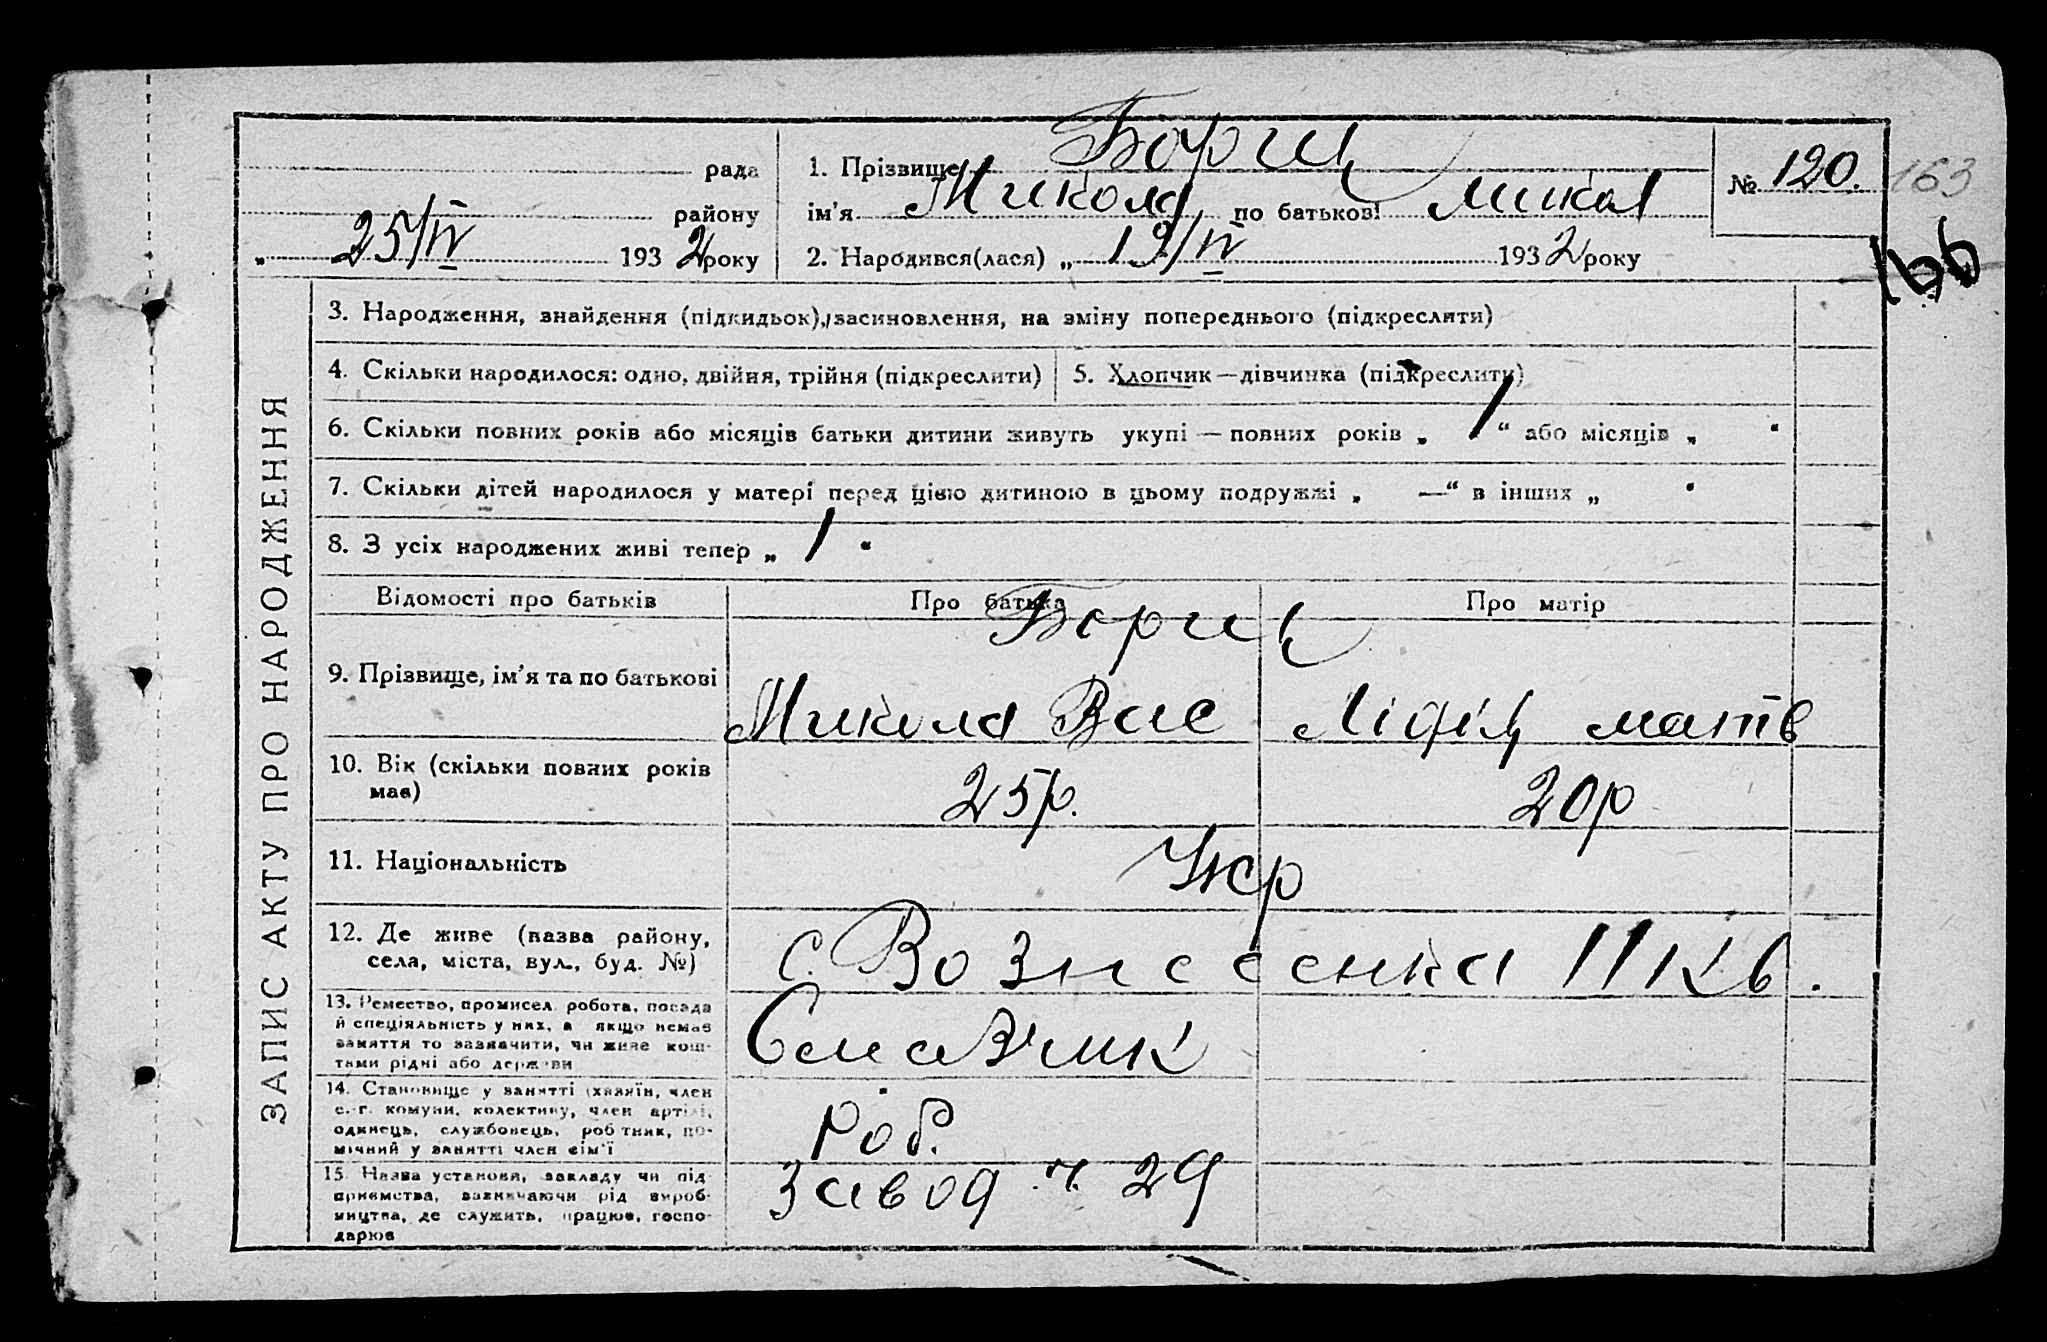 рада
району
„ 25/IV 1932 року
1. Прізвище Борщ
ім'я Микола по батькові Микол
2. Народився(лася) „ 19/IV 1932 року
№ 120. 163
166
ЗАПИС АКТУ ПРО НАРОДЖЕННЯ
3. Народження, знайдення (підкидьок), засиновлення, на зміну попереднього (підкреслити)
4. Скільки народилося: одно, двійня, трійня (підкреслити)
5. Хлопчик — дівчинка (підкреслити)
6. Скільки повних років або місяців батьки дитини живуть укупі — повних років „ 1 “ або місяців „ “
7. Скільки дітей народилося у матері перед цією дитиною в цьому подружжі „ —“ в інших „ “
8. З усіх народжених живі тепер „ 1 “
Відомості про батьків Про батька Про матір
Борщ
9. Прізвище, ім'я та по батькові
Микола Вас Лідія матв
10. Вік (скільки повних років
має)
25р. 20р
11. Національність
Укр
12. Де живе (назва району,
села, міста, вул., буд. №)
с. Вознесенка 11 кв.
13. Ремество, промисел, робота, посада
й спеціяльність у них, а якщо немає
заняття то зазначити, чи живе кош-
тами рідні або держави
Смазчик
14. Становище у занятті (хазяїн, член
с.-г. комуни, колективу, член артілі,
одинець, службовець, робітник, по-
мічний у занятті член сім'ї
Роб.
15. Назва установи, закладу чи під-
приємства, зазначаючи рід вироб-
ництва, де служить, працює, госпо-
дарює
Завод ч. 29